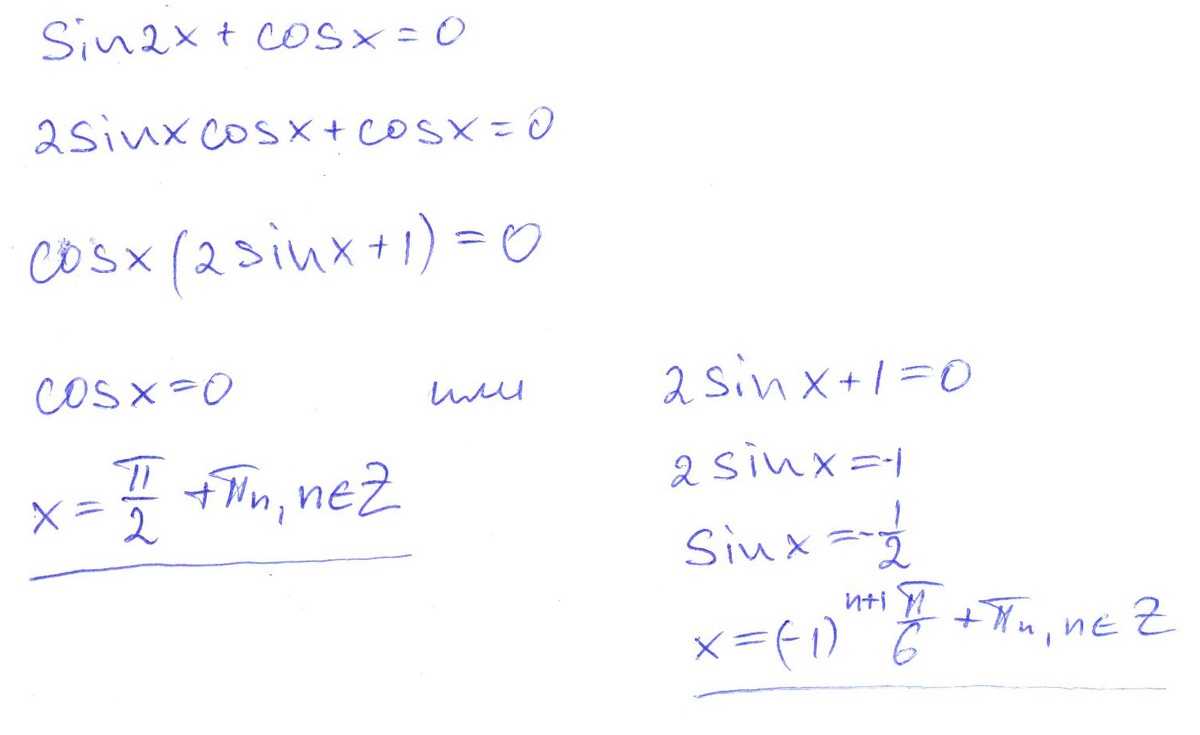 sin2x + cosx = 0
2sinxcosx + cosx = 0
cosx(2sinx+1) = 0
cosx=0 или 2sinx+1=0
x = π/2 + πn, n∈Z
2sinx=-1
sinx=-1/2
x=(-1)^(n+1) π/6 + πn, n∈Z